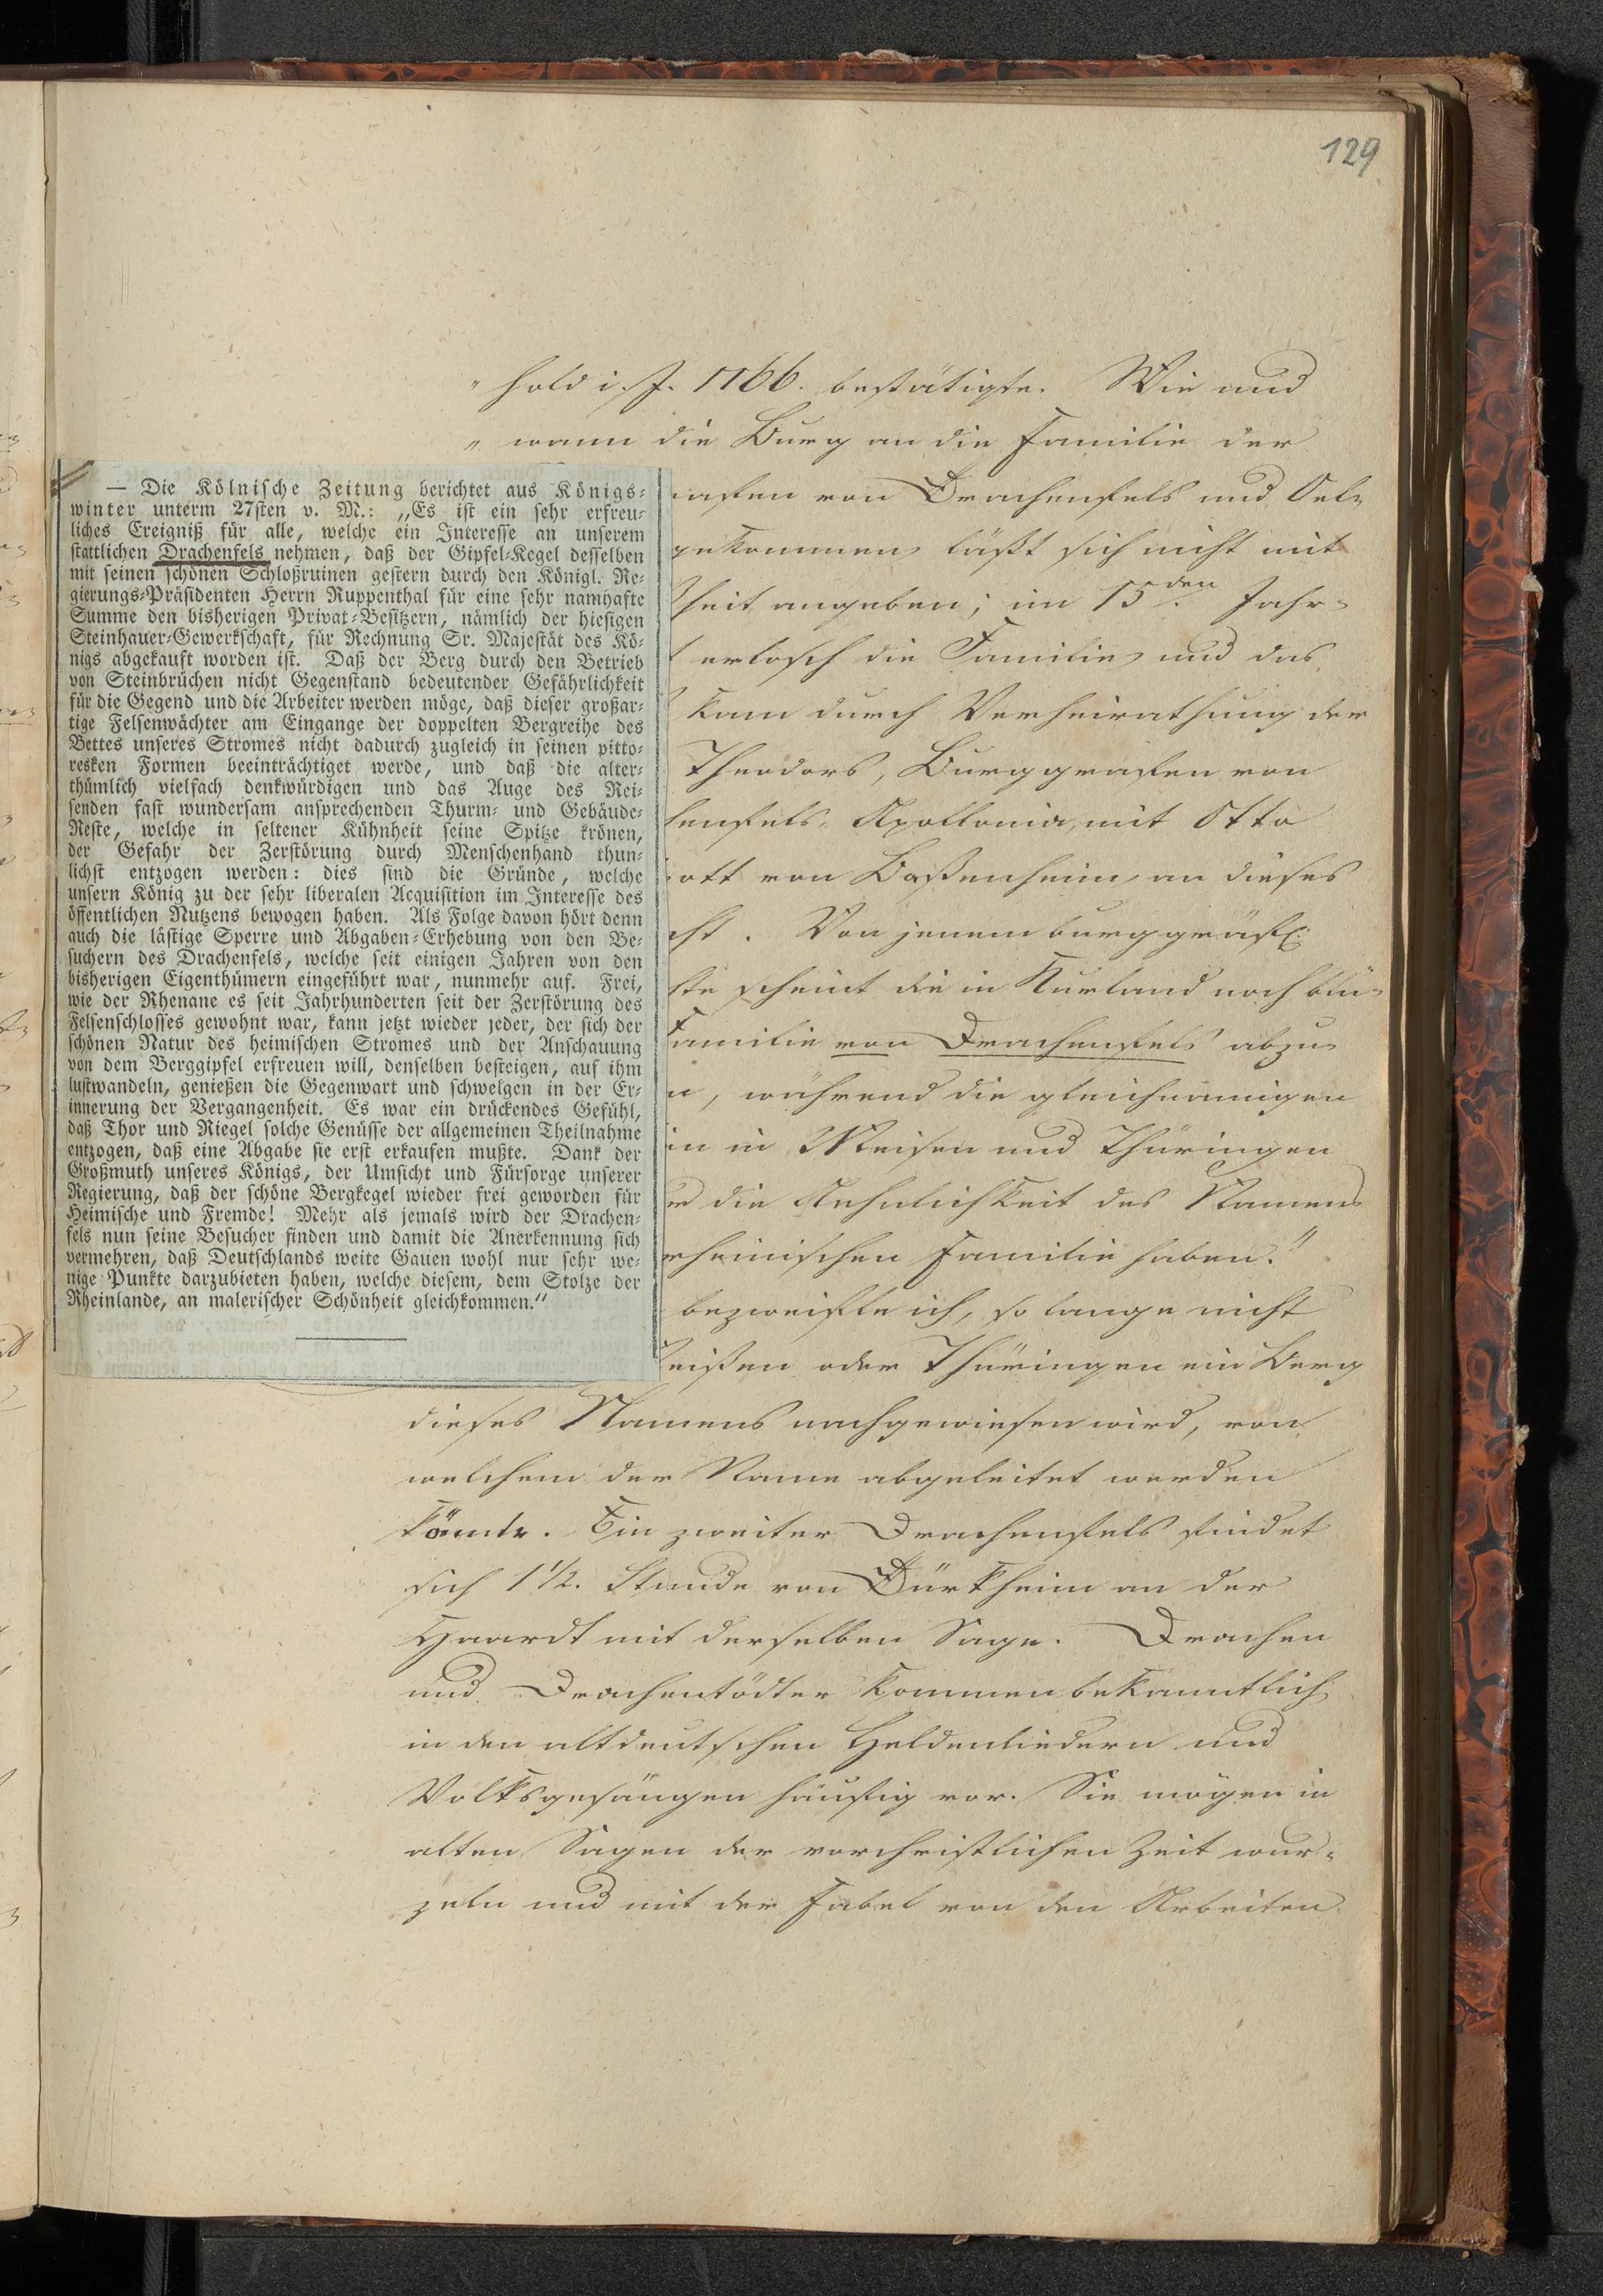 129
„ hold i. J. 1766. bestätigte. Wie und
„ wann die Burg an die Familie der
— Die Kölnische Zeitung berichtet aus Königs-
winter unterm 27sten v. M.: „Es ist ein sehr erfreu-
liches Ereigniß für alle, welche ein Interesse an unserem
stattlichen Drachenfels nehmen, daß der Gipfel-Kegel desselben
mit seinen schönen Schloßruinen gestern durch den Königl. Re-
gierungs-Präsidenten Herrn Ruppenthal für eine sehr namhafte
Summe den bisherigen Privat-Besitzern, nämlich der hiesigen
Steinhauer-Gewerkschaft, für Rechnung Sr. Majestät des Kö-
nigs abgekauft worden ist. Daß der Berg durch den Betrieb
von Steinbrüchen nicht Gegenstand bedeutender Gefährlichkeit
für die Gegend und die Arbeiter werden möge, daß dieser großar-
tige Felsenwächter am Eingange der doppelten Bergreihe des
Bettes unseres Stromes nicht dadurch zugleich in seinen pitto-
resken Formen beeinträchtiget werde, und daß die alter-
thümlich vielfach denkwürdigen und das Auge des Rei-
senden fast wundersam ansprechenden Thurm- und Gebäude-
Reste, welche in seltener Kühnheit seine Spitze krönen,
der Gefahr der Zerstörung durch Menschenhand thun-
lichst entzogen werden: dies sind die Gründe, welche
unsern König zu der sehr liberalen Acquisition im Interesse des
öffentlichen Nutzens bewogen haben. Als Folge davon hört denn
auch die lästige Sperre und Abgaben-Erhebung von den Be-
suchern des Drachenfels, welche seit einigen Jahren von den
bisherigen Eigenthümern eingeführt war, nunmehr auf. Frei,
wie der Rhenane es seit Jahrhunderten seit der Zerstörung des
Felsenschlosses gewohnt war, kann jetzt wieder jeder, der sich der
schönen Natur des heimischen Stromes und der Anschauung
von dem Berggipfel erfreuen will, denselben besteigen, auf ihm
lustwandeln, genießen die Gegenwart und schwelgen in der Er-
innerung der Vergangenheit. Es war ein drückendes Gefühl,
daß Thor und Riegel solche Genüsse der allgemeinen Theilnahme
entzogen, daß eine Abgabe sie erst erkaufen mußte. Dank der
Großmuth unseres Königs, der Umsicht und Fürsorge unserer
Regierung, daß der schöne Bergkegel wieder frei geworden für
Heimische und Fremde! Mehr als jemals wird der Drachen-
fels nun seine Besucher finden und damit die Anerkennung sich
vermehren, daß Deutschlands weite Gauen wohl nur sehr we-
nige Punkte darzubieten haben, welche diesem, dem Stolze der
Rheinlande, an malerischer Schönheit gleichkommen.“
afen von Drachenfels und Oel-
gekommen läßt sich nicht mit
heit angeben; im 15den Jahr-
t erlosch die Familie und das
kam durch Verheirathung der
Theodors, Burggrafen von
henfels, Apollonia, mit Otto
ott von Baßenheim an dieses
cht. Von jenem burggräfl.
te scheint die in Kurland noch blü-
Familie von Drachenfels abzu-
n, während die gleichnamigen
in in Meisen und Thüringen
die Aehnlichkeit des Namens
rheinischen Familie haben.“
bezweifle ich, so lange nicht
eißen oder Thüringen ein Berg
dieses Namens nachgewiesen wird, von
welchem der Name abgeleitet werden
könnte. Ein zweiter Drachenfels findet
sich 1 1/2. Stunde von Dürkheim an der
Haardt mit derselben Sage. Drachen
und Drachentödter kommen bekanntlich
in den altdeutschen Heldenliedern und
Volksgesängen häufig vor. Sie mögen in
alten Sagen der vorchristlichen Zeit wur-
zeln und mit der Fabel von den Arbeiten